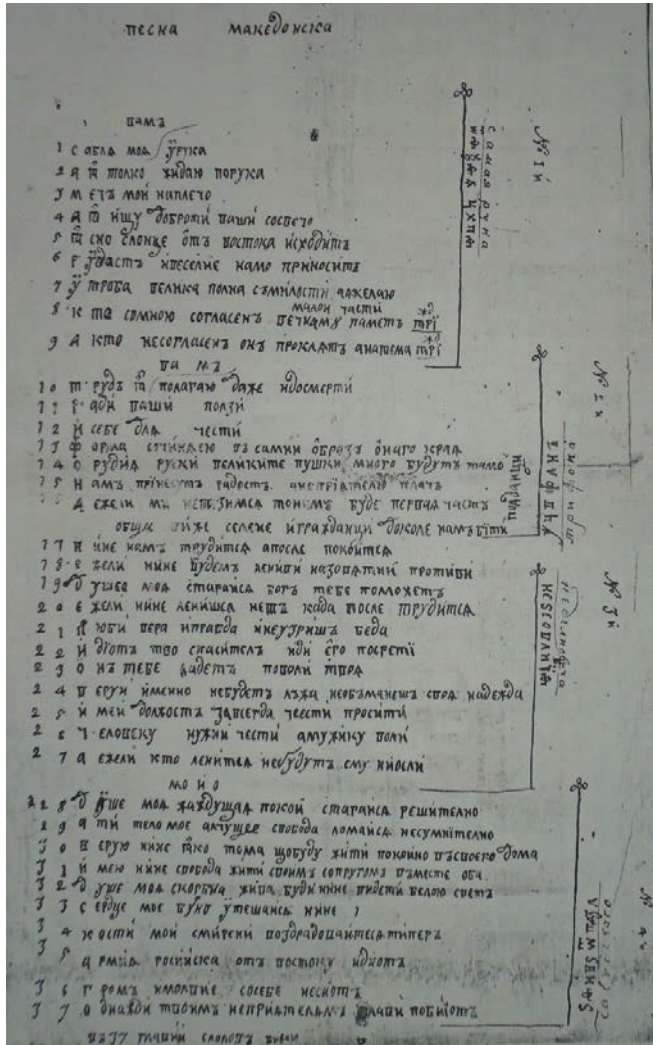 песна македонска
памъ
1 сабля моя ў рука
2 а я толко жидаю порука
3 мечъ мой наплечо
4 а я ищу доброти ваши сосвечо
5 ясно слонце отъ востока исходитъ
6 г ўдастъ ивеселие намо приноситъ
7 ўтроба велика полна съмилости аджелаю
малои части
8 кто сомною согласенъ вечкаму паметъ трї
9 а кто несогласенъ онъ проклятъ анатема трї
памъ
10 трудъ я полагаю даже идосмерти
11 ради ваши ползи
12 и себе для чести
13 форма сочиняею въ самии образъ онаго края
14 орудия руски великите пушки много будутъ тамо
15 намъ принесутъ радостъ анеприятелю плачъ
16 а ежели ми невозимся тоиимъ буде первая частъ
обще ниже селене играждани доколе намъ бити
17 и нине намъ трудится апосле покоится
18 ежели нине будемъ лениви назовятнии противи
19 душее моя старайся богъ тебе поможетъ
20 ежели нине ленишся нешъ када после трудится
21 люби вера иправда инеузришъ беда
22 идіотъ тво спаситель иди его посретї
23 онъ тебе дадетъ поволи твоя
24 веруи именно небудетъ лъжа необъманешъ своя надежда
25 имей должостъ завсегда чеести просити
26 человеку нужни чести амужику воли
27 а ежели кто ленится небудутъ ему ниволи
мойо
28 дўше моя жаждущая покой старайся решително
29 а ти тело мое алчущее свобода ломайся несумнително
30 верую нине яко тома щобуду жити покойно въсвоего дома
31 имею нине свобода жити своимъ сопругомъ въместе оба
32 душе моя скорбна жива буди нине видети белою светъ
33 сердце мое буно ўтешайся нине
34 кости мои смирени воздрадовайтеся типеръ
35 армия росийска отъ востоку идиотъ
36 громъ имолние сосебе несиотъ
37 однажди твоимъ неприятелямъ глави побиютъ
въ 37 главии словотъ
самая ручна
№ 1й
подданици
трифона
№ 2 и
№ 3й
№ 4